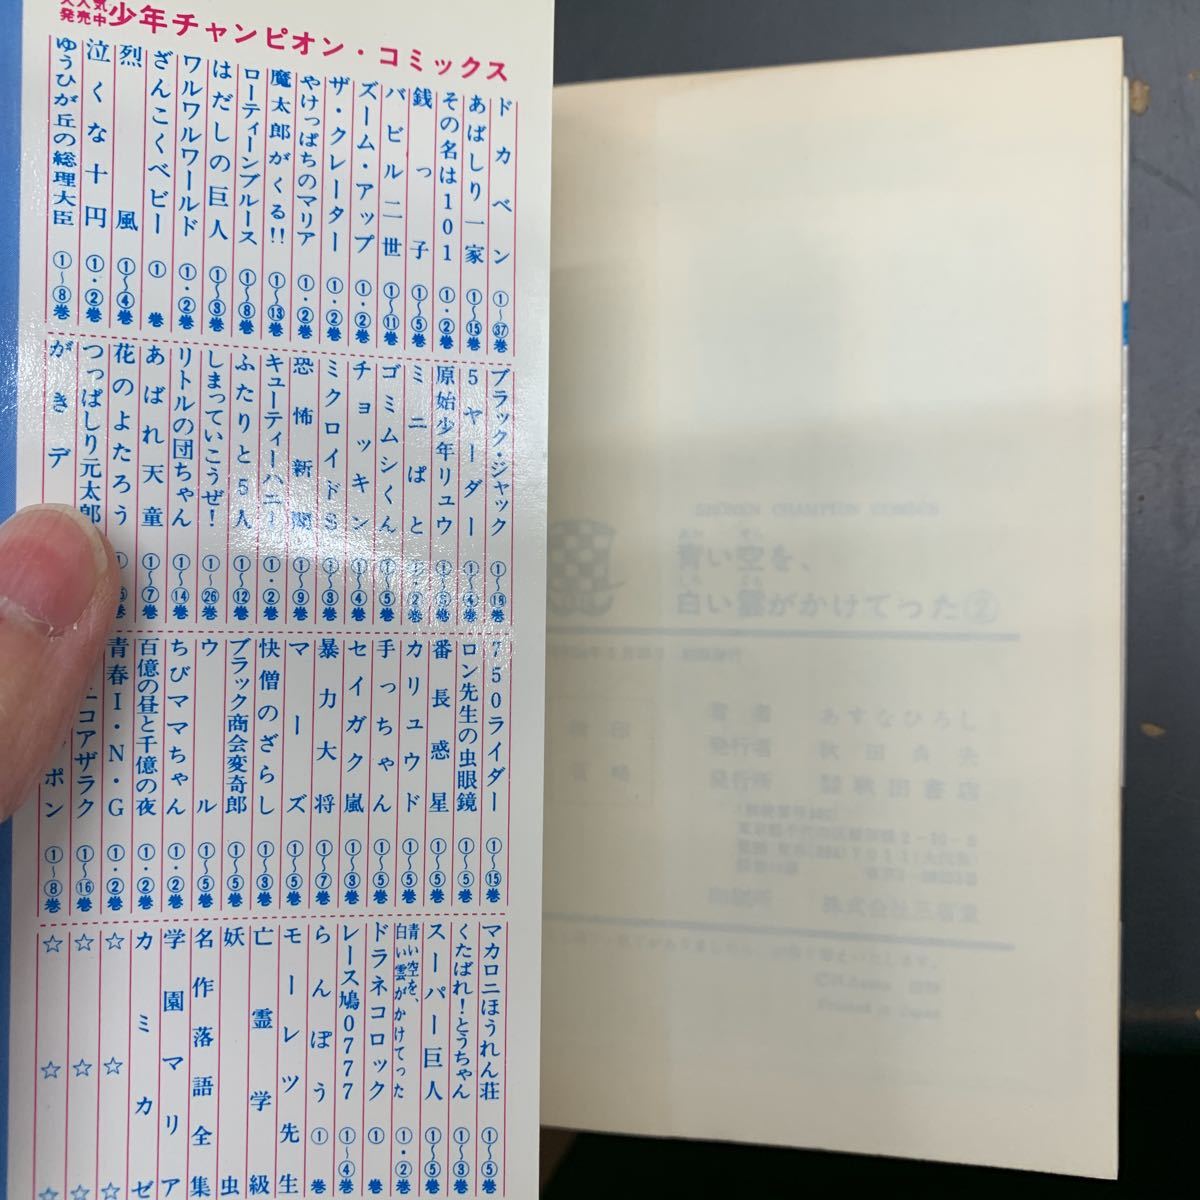 大人気
発売中
少年チャンピオン・コミックス
ドカベン ①〜㊲巻
あばしり一家 ①〜⑮巻
その名は101 ①・②巻
銭っ子 ①〜⑤巻
バビル二世 ①〜⑪巻
ズーム・アップ ①・②巻
ザ・クレーター ①・②巻
やけっぱちのマリア ①・②巻
魔太郎がくる!! ①〜⑬巻
ローティーンブルース ①〜⑧巻
はだしの巨人 ①〜③巻
ワルワルワールド ①・②巻
ざんこくベビー ① 巻
烈風 ①〜④巻
泣くな十円 ①・②巻
ゆうひが丘の総理大臣 ①〜⑧巻
ブラック・ジャック ①〜⑱巻
5ヤーダー ①〜④巻
原始少年リュウ
ミニぱと ②巻
ゴミムシくん ①〜⑤巻
チョッキン ①〜④巻
ミクロイドS ①〜③巻
恐怖新聞 ①〜⑨巻
キューティーハニー ①・②巻
ふたりと5人 ①〜⑫巻
しまっていこうぜ! ①〜㉖巻
リトルの団ちゃん ①〜⑭巻
あばれ天童 ①〜⑦巻
花のよたろう
つっぱしり元太郎
がきデ
750ライダー ①〜⑮巻
ロン先生の虫眼鏡 ①〜⑤巻
番長惑星 ①〜⑤巻
カリュウド ①〜⑤巻
手っちゃん ①〜⑤巻
セイガク嵐 ①〜③巻
暴力大将 ①〜⑦巻
マーズ ①〜⑤巻
快僧のざらし ①〜③巻
ブラック商会変奇郎 ①〜⑤巻
ウル ①〜⑤巻
ちびママちゃん ①・②巻
百億の昼と千億の夜 ①・②巻
青春I・N・G ①・②巻
エコアザラク ①〜⑯巻
ポン ①〜⑧巻
マカロニほうれん荘 ①〜⑤巻
くたばれ!とうちゃん ①〜③巻
スーパー巨人 ①〜⑤巻
青い空を、
白い雲がかけてった ①・②巻
ドラネコロック ① 巻
レース鳩0777 ①〜④巻
らんぽう ① 巻
モーレツ先生
亡霊学級
妖虫
名作落語全集
学園マリア
カミカゼ
☆ ☆ ☆
☆ ☆ ☆
☆ ☆ ☆
SHONEN CHAMPION COMICS
青い空を、
白い雲がかけてった②
著者 あすなひろし
発行者 秋田貞夫
発行所 株式会社秋田書店
印刷所 株式会社三晃堂
Printed in Japan